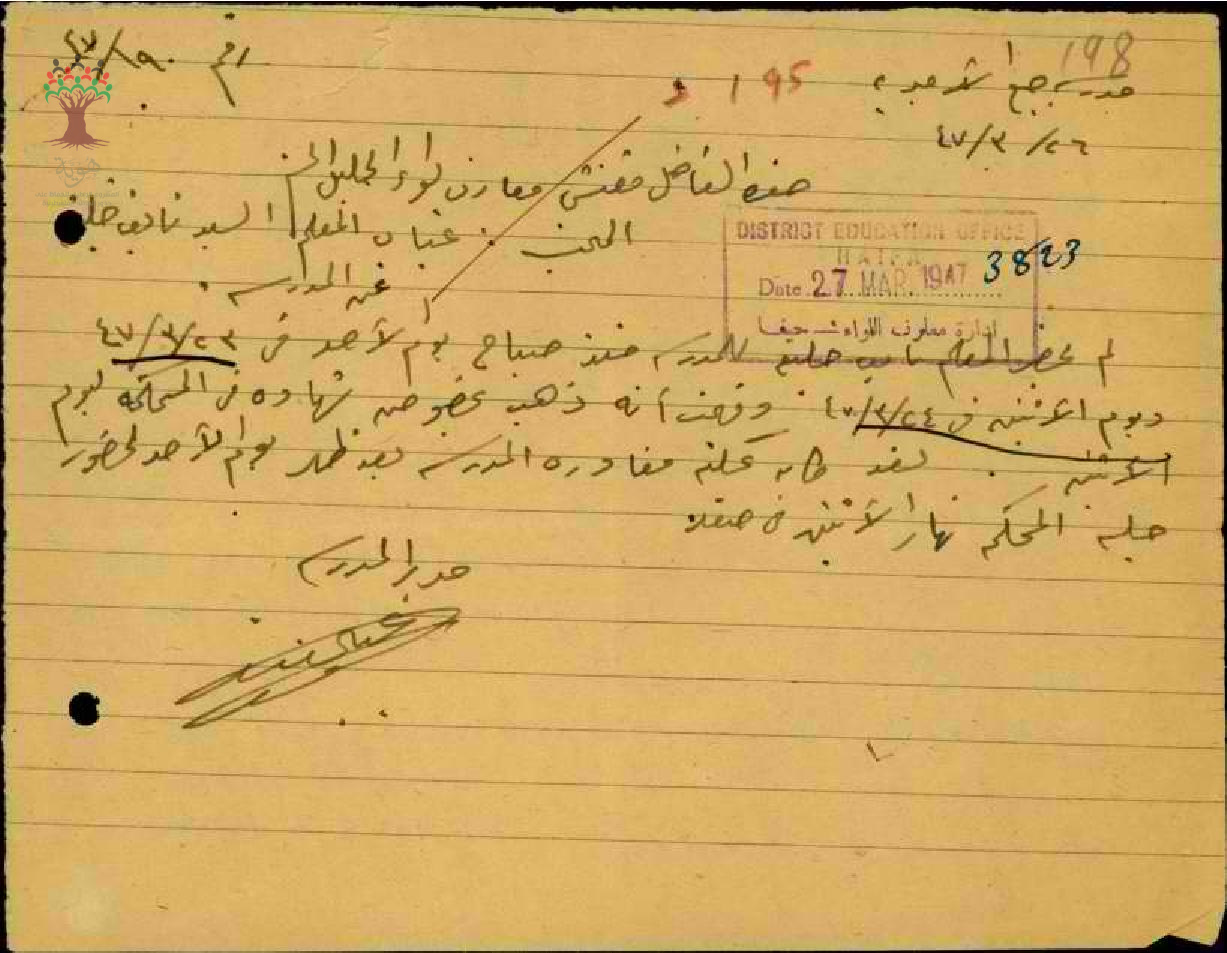 198
رقم ٤٧/١٩٠
مدرسة
195
٤٧/٣/٢٦
حضرة الفاضل مفتش معارف لواء الجليل المحترم
المبحث : غياب المعلم السيد نايف
عن المدرسة .
DISTRICT EDUCATION OFFICE
HAIFA
Date 27 MAR 1947
3823
ادارة معارف اللواء - حيفا
لم يحضر المعلم نايف للمدرسة منذ صباح يوم الأحد في ٤٧/٣/٢٣
ويوم الاثنين في ٤٧/٣/٢٤ . وفهمت أنه ذهب بخصوص شهادة في المحكمة يوم
الاثنين . لقد كان يمكنه مغادرة المدرسة بعد ظهر يوم الأحد لحضور
جلسة المحكمة نهار الاثنين في صفد
مدير المدرسة